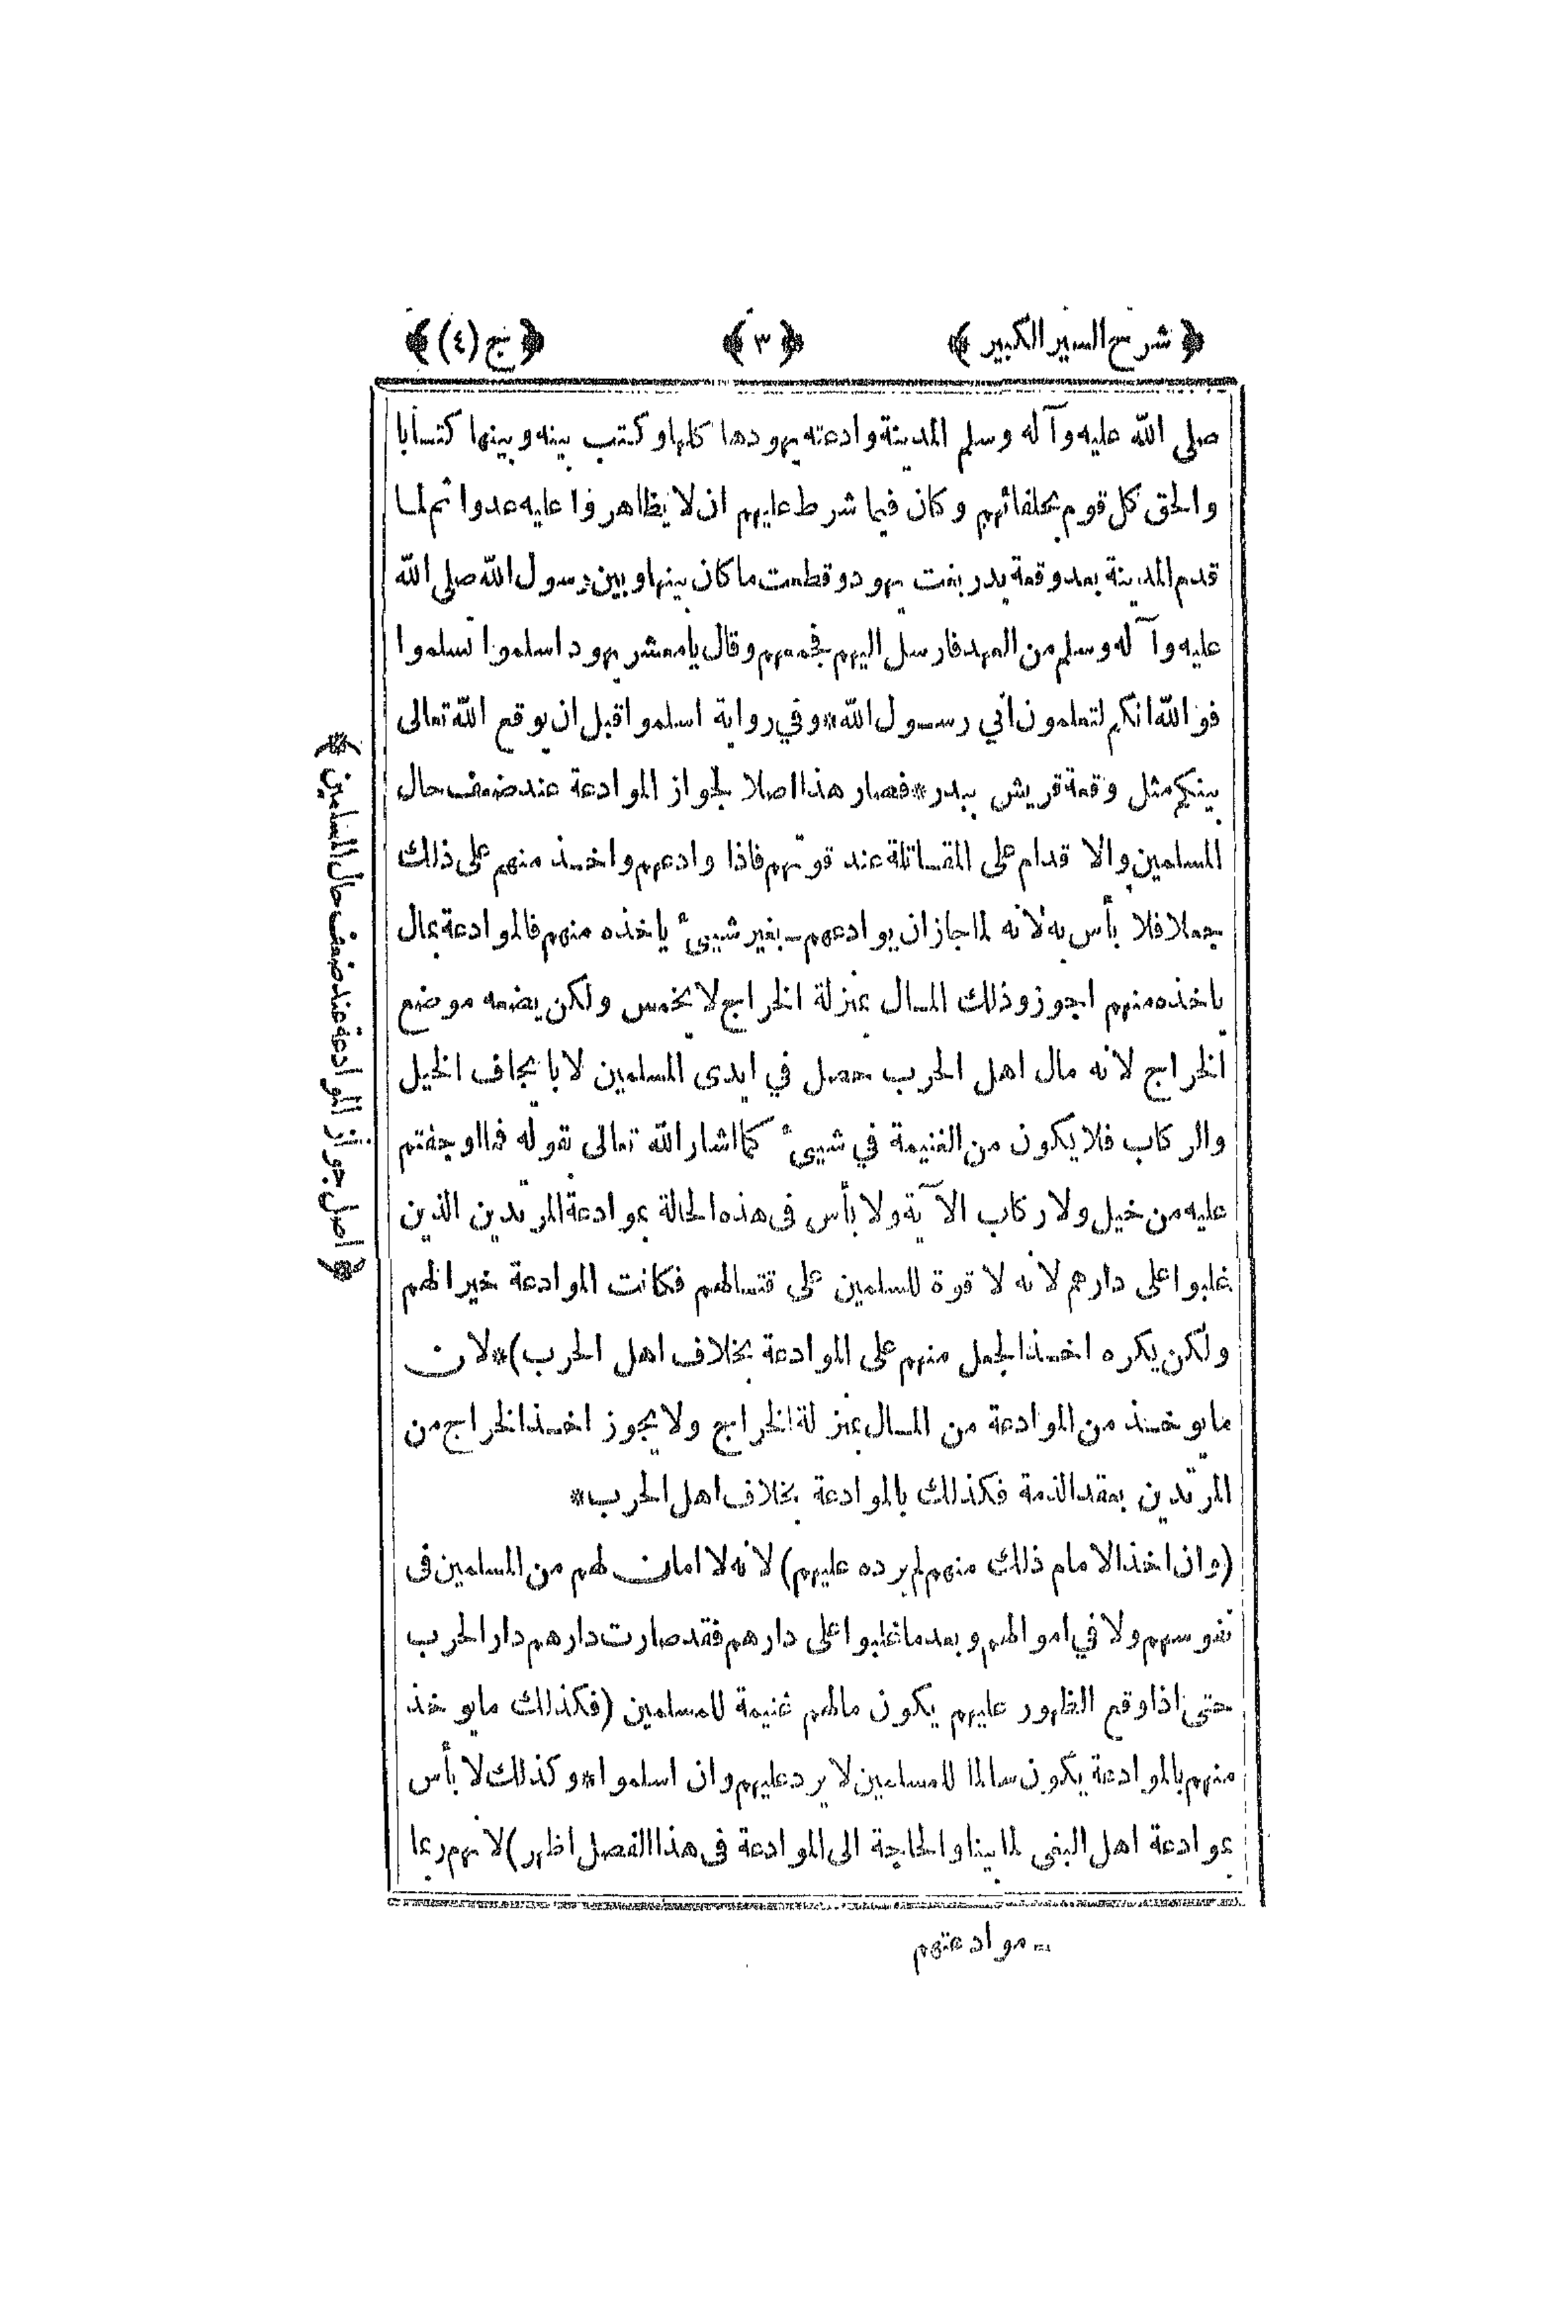 ﴿ شرح السير الكبير ﴾ ﴿ ٣ ﴾ ﴿ ج (٤) ﴾
صلى الله عليه وآله وسلم المدينة وادعته يهودها كلها وكتب بينه وبينها كتابا
والحق كل قوم بحلفائهم وكان فيما شرط عليهم ان لا يظاهروا عليه عدوا ثم لما
قدم المدينة بعد وقعة بدر بغت يهود وقطعت ما كان بينها وبين رسول الله صلى الله
عليه وآله وسلم من العهد فارسل اليهم فجمعهم وقال يا معشر يهود اسلموا تسلموا
فوالله انكم لتعلمون اني رسول الله * وفي رواية اسلموا قبل ان يوقع الله تعالى
بينكم مثل وقعة قريش ببدر * فصار هذا اصلا لجواز الموادعة عند ضعف حال
المسلمين والاقدام على المقاتلة عند قوتهم فاذا وادعهم واخذ منهم على ذلك
جعلا فلا بأس به لانه لما جاز ان يوادعهم بغير شيئ ياخذه منهم فالموادعة بمال
ياخذه منهم اجوز وذلك المال بمنزلة الخراج لا يخمس ولكن يضعه موضع
الخراج لانه مال اهل الحرب حصل في ايدى المسلمين لا بايجاف الخيل
والركاب فلا يكون من الغنيمة في شيئ كما اشار الله تعالى بقوله فما اوجفتم
عليه من خيل ولا ركاب الآية ولا بأس فى هذه الحالة بموادعة المرتدين الذين
غلبوا على دارهم لانه لا قوة للمسلمين على قتالهم فكانت الموادعة خيرا لهم
ولكن يكره اخذ الجعل منهم على الموادعة بخلاف اهل الحرب) * لان
ما يوخذ من الموادعة من المال بمنزلة الخراج ولا يجوز اخذ الخراج من
المرتدين بعقد الذمة فكذلك بالموادعة بخلاف اهل الحرب *
(وان اخذ الامام ذلك منهم لم يرده عليهم) لانه لا امان لهم من المسلمين فى
نفوسهم ولا في اموالهم وبعد ما غلبوا على دارهم فقد صارت دارهم دار الحرب
حتى اذا وقع الظهور عليهم يكون مالهم غنيمة للمسلمين (فكذلك ما يوخذ
منهم بالموادعة يكون سالما للمسلمين لا يرد عليهم وان اسلموا * وكذلك لا بأس
بموادعة اهل البغى لما بينا والحاجة الى الموادعة فى هذا الفصل اظهر) لانهم ربما
موادعتهم
﴿ اصل جواز الموادعة عند ضعف حال المسلمين ﴾